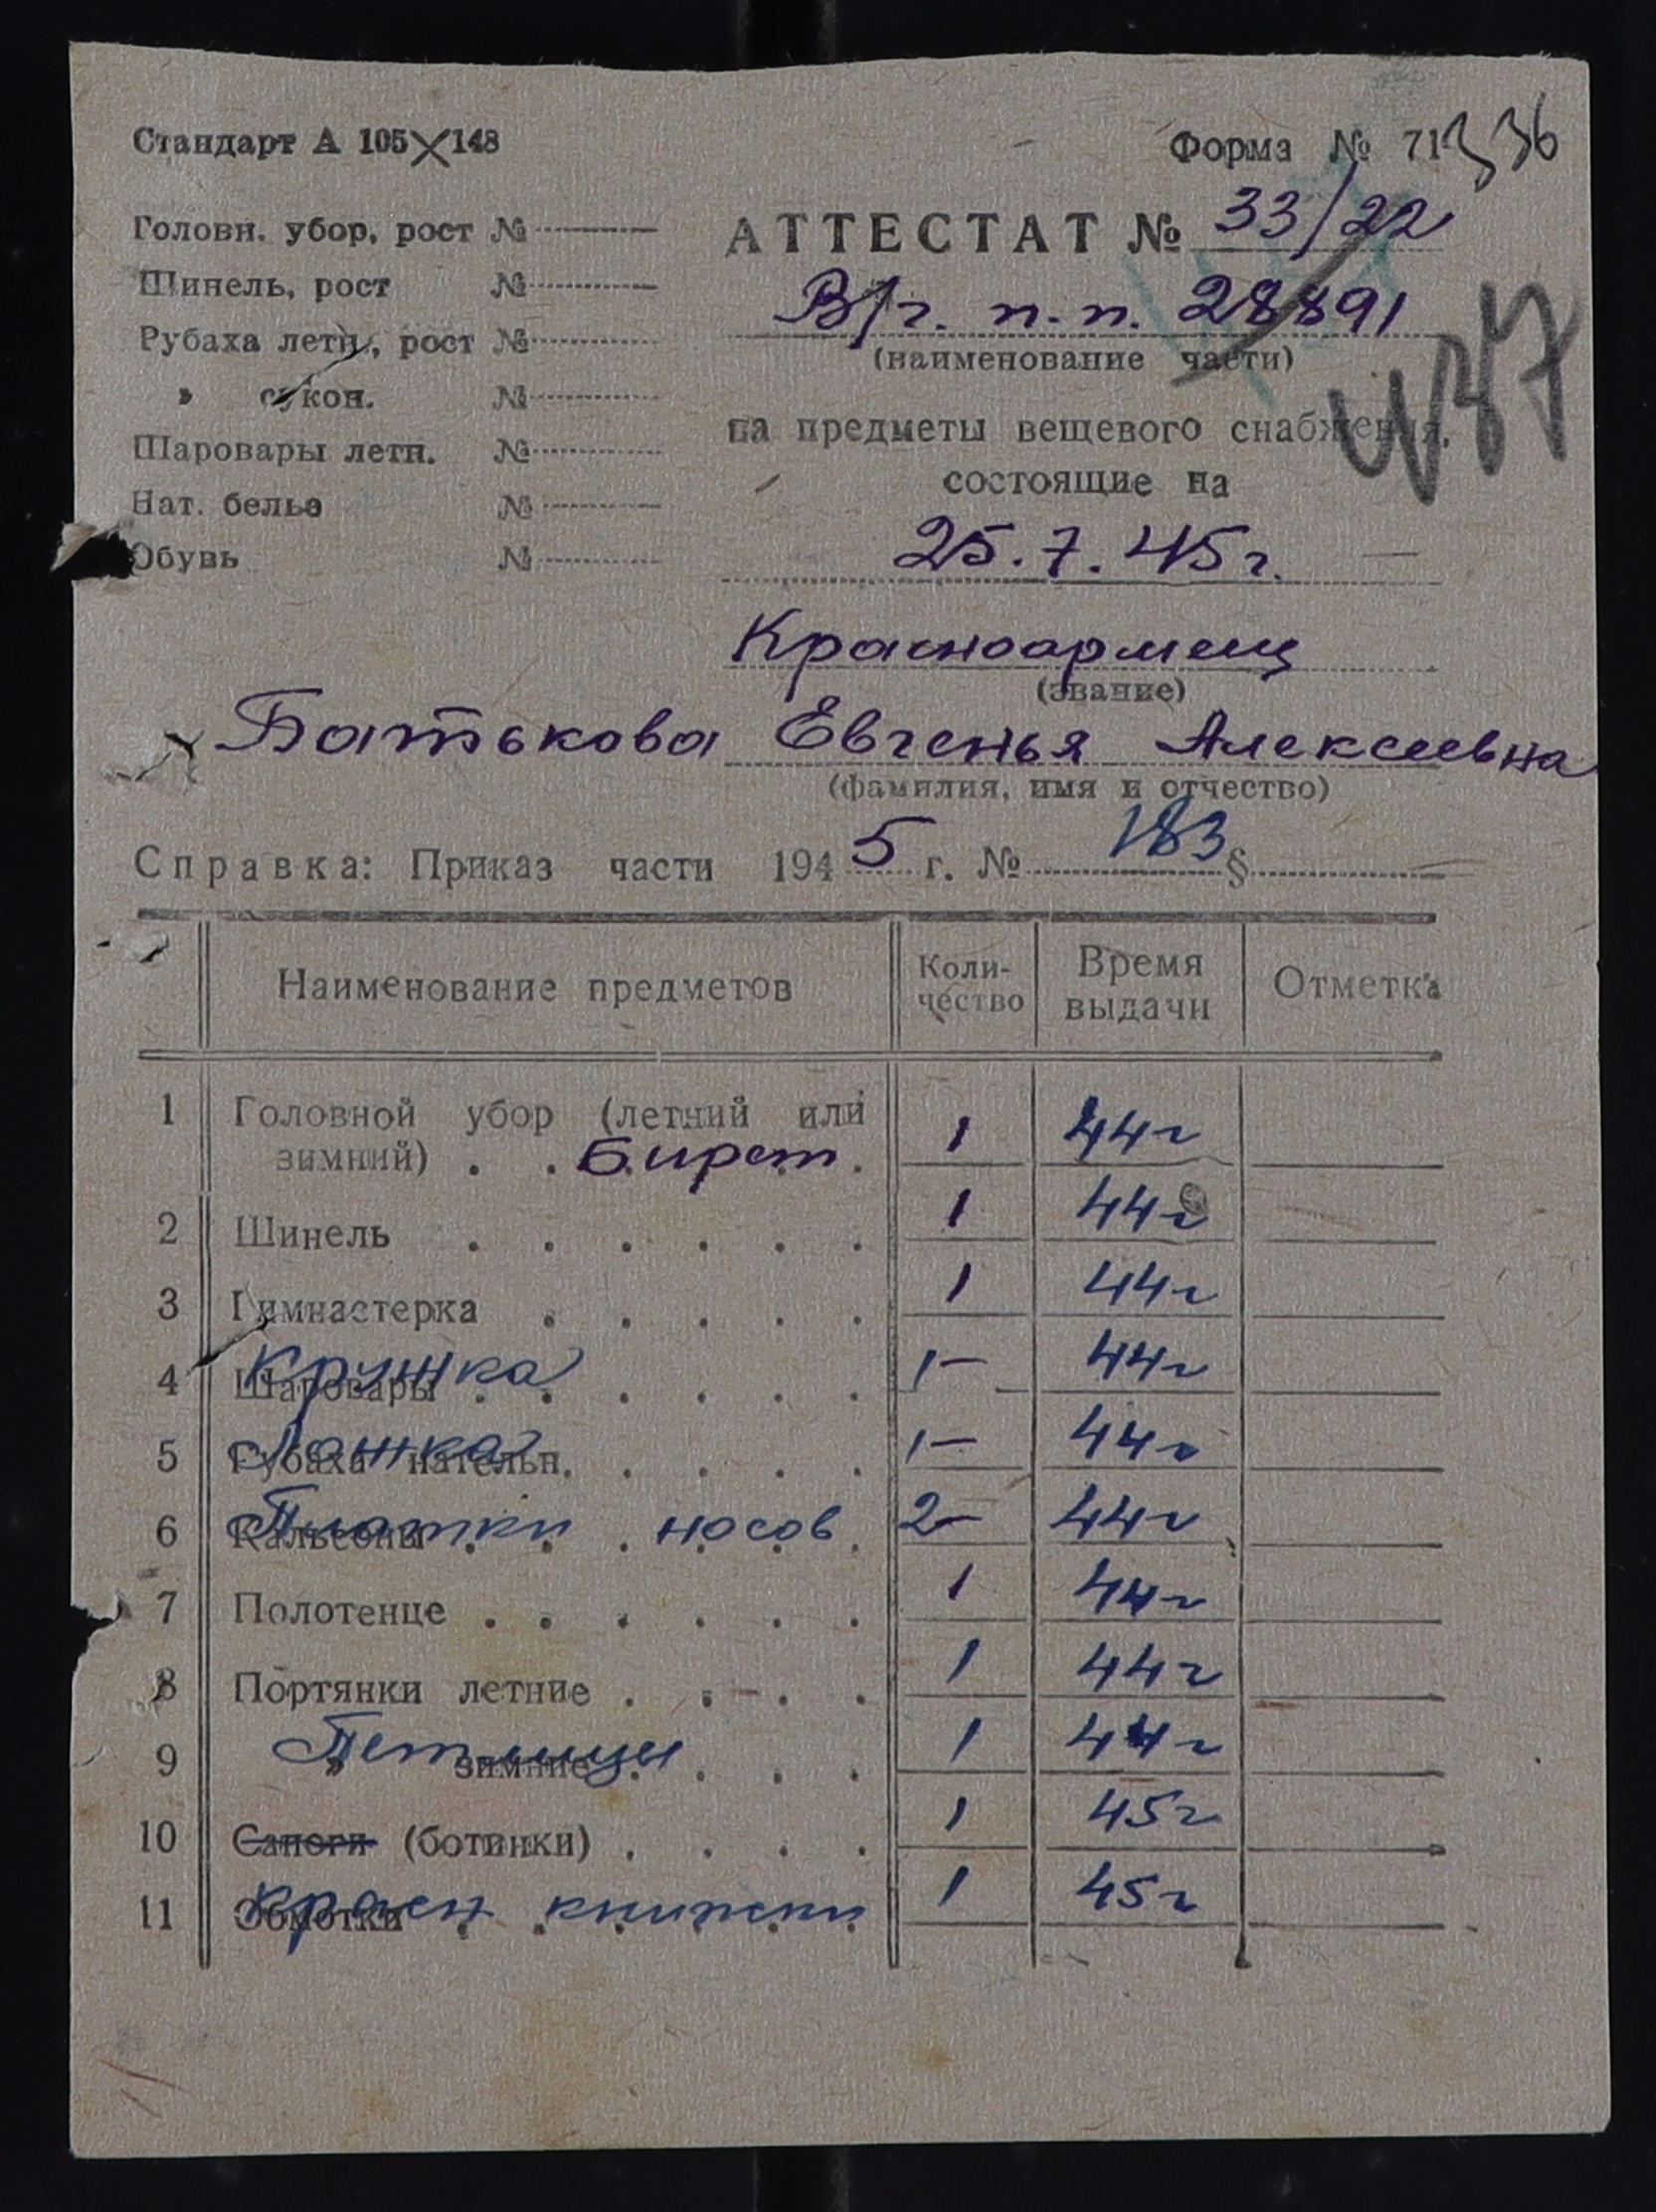 Стандарт А 105×148
Форма № 71
336
Головн. убор, рост №
Шинель, рост №
Рубаха летн., рост №
» сукон. №
Шаровары летн. №
Нат. белье №
Обувь №
АТТЕСТАТ № 33/22
В/ч. п.п. 28891
(наименование части)
на предметы вещевого снабжения,
состоящие на
25.7.45г.
Красноармеец
(звание)
Батькова Евгенья Алексеевна
(фамилия, имя и отчество)
Справка: Приказ части 1945 г. № 183 §
Наименование предметов Коли-чество Время выдачи Отметка
1 Головной убор (летний или
зимний) . . Бирет. 1 44г
2 Шинель . . . . . . 1 44г
3 Гимнастерка . . . . . 1 44г
4 Шаровары Кружка . . . . . . 1- 44г
5 Рубаха нательн. Ложка . . . . 1- 44г
6 Кальсоны Платки носов 2- 44г
7 Полотенце . . . . . . 1 44г
8 Портянки летние . . . . 1 44г
9 » зимние Петлицы . . . . 1 44г
10 Сапоги (ботинки) . . . . 1 45г
11 Обмотки Красн книжки 1 45г